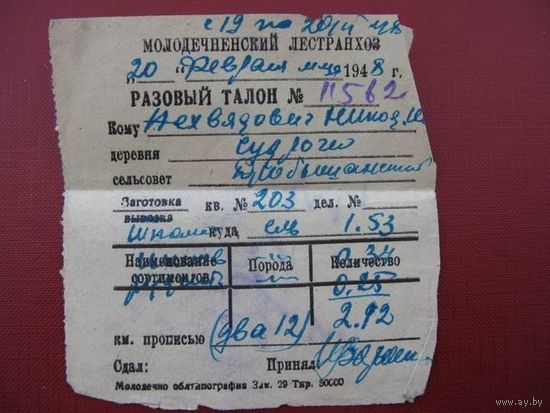 с 19 по 20/II 48
МОЛОДЕЧНЕНСКИЙ ЛЕСТРАНХОЗ
„20“ Февраля м-ца 1948 г.
РАЗОВЫЙ ТАЛОН № 11562
Кому Нехвядович
деревня
сельсовет
Заготовка кв. № 203 дел. №
вывозка
куда ель 1.53
Наименование сортиментов Порода Количество
2.34
0.25
2.12
км. прописью (два 12)
Сдал: Принял:
Молодечно облтипография Зак. 29 Тир. 50000
www.ay.by